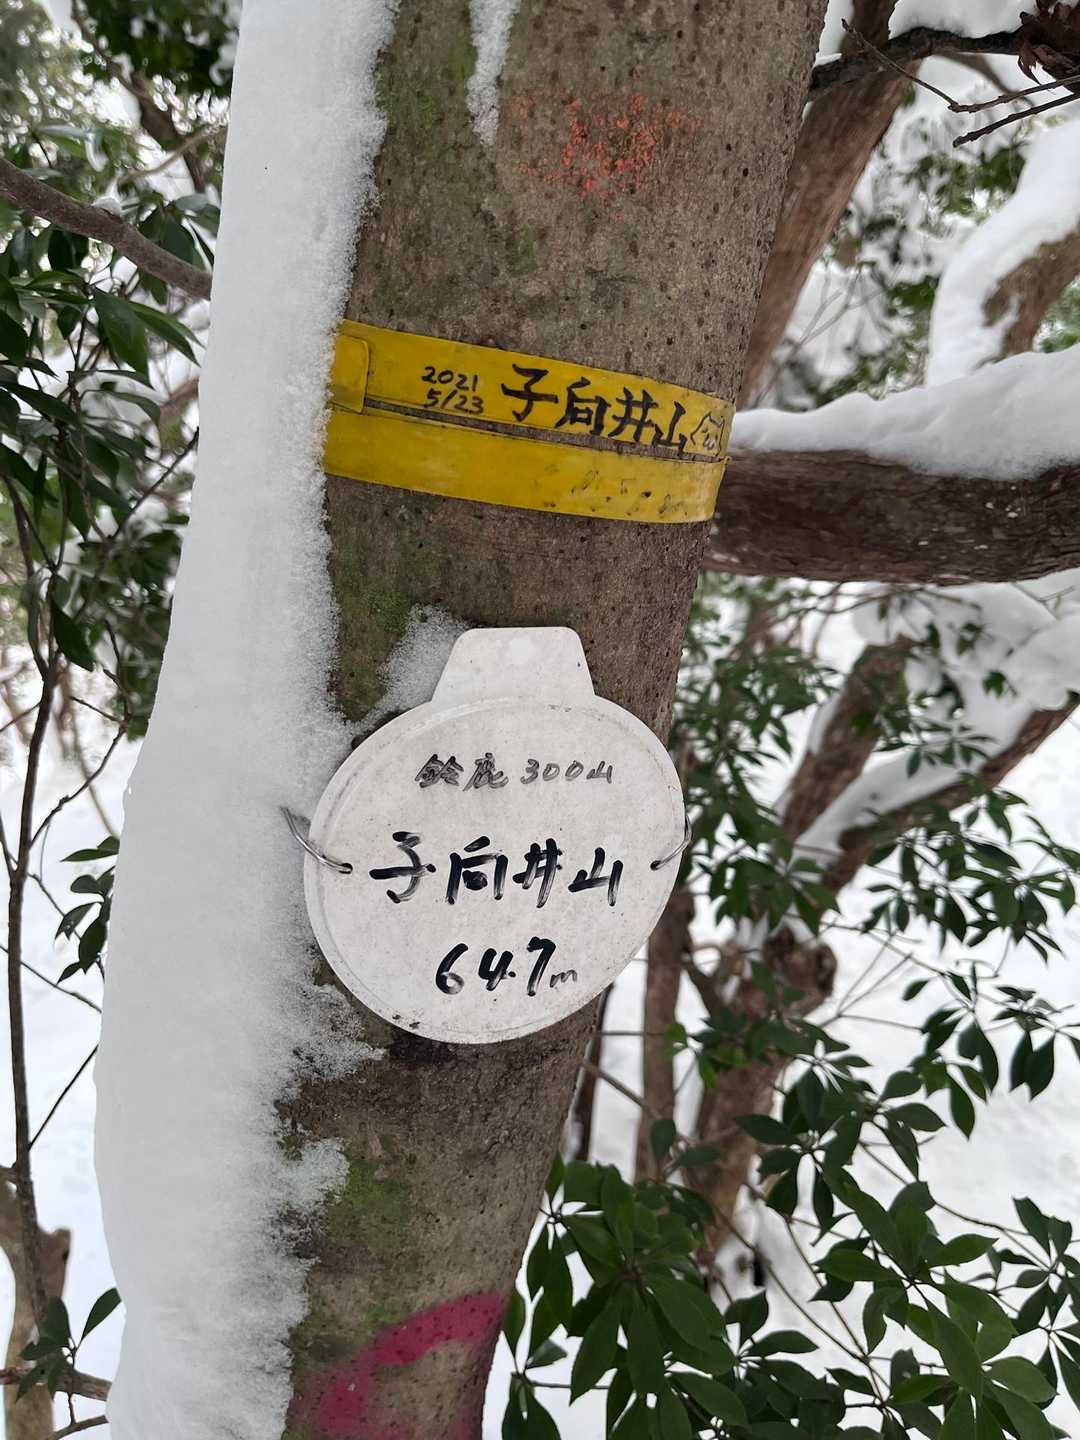 2021
5/23
子向井山
鈴鹿300山
子向井山
647m